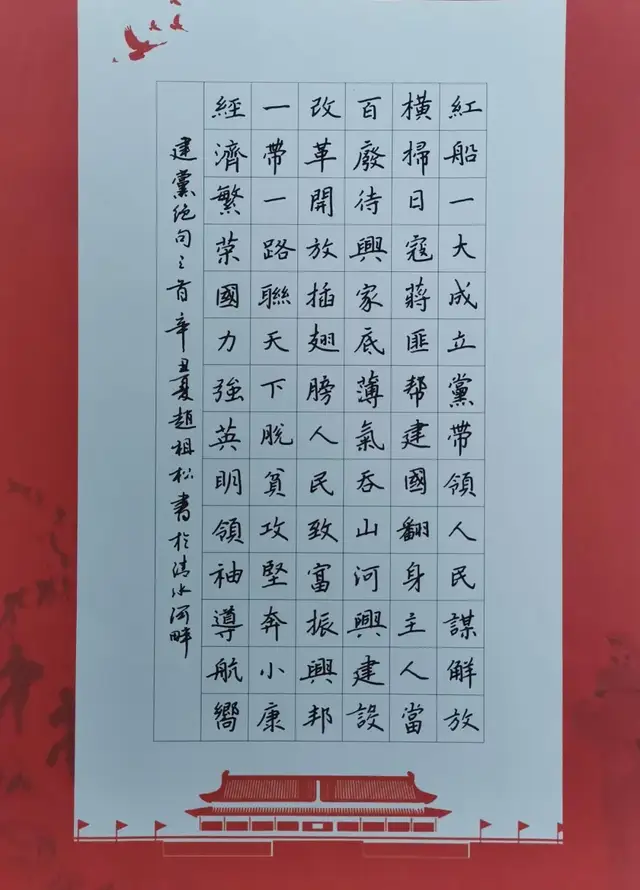 紅船一大成立黨帶領人民謀解放
橫掃日寇蔣匪幫建國翻身主人當
百廢待興家底薄氣吞山河興建設
改革開放插翅膀人民致富振興邦
一帶一路聯天下脫貧攻堅奔小康
經濟繁榮國力強英明領袖導航嚮
建黨絕句之首辛丑夏趙祖松書於清水河畔